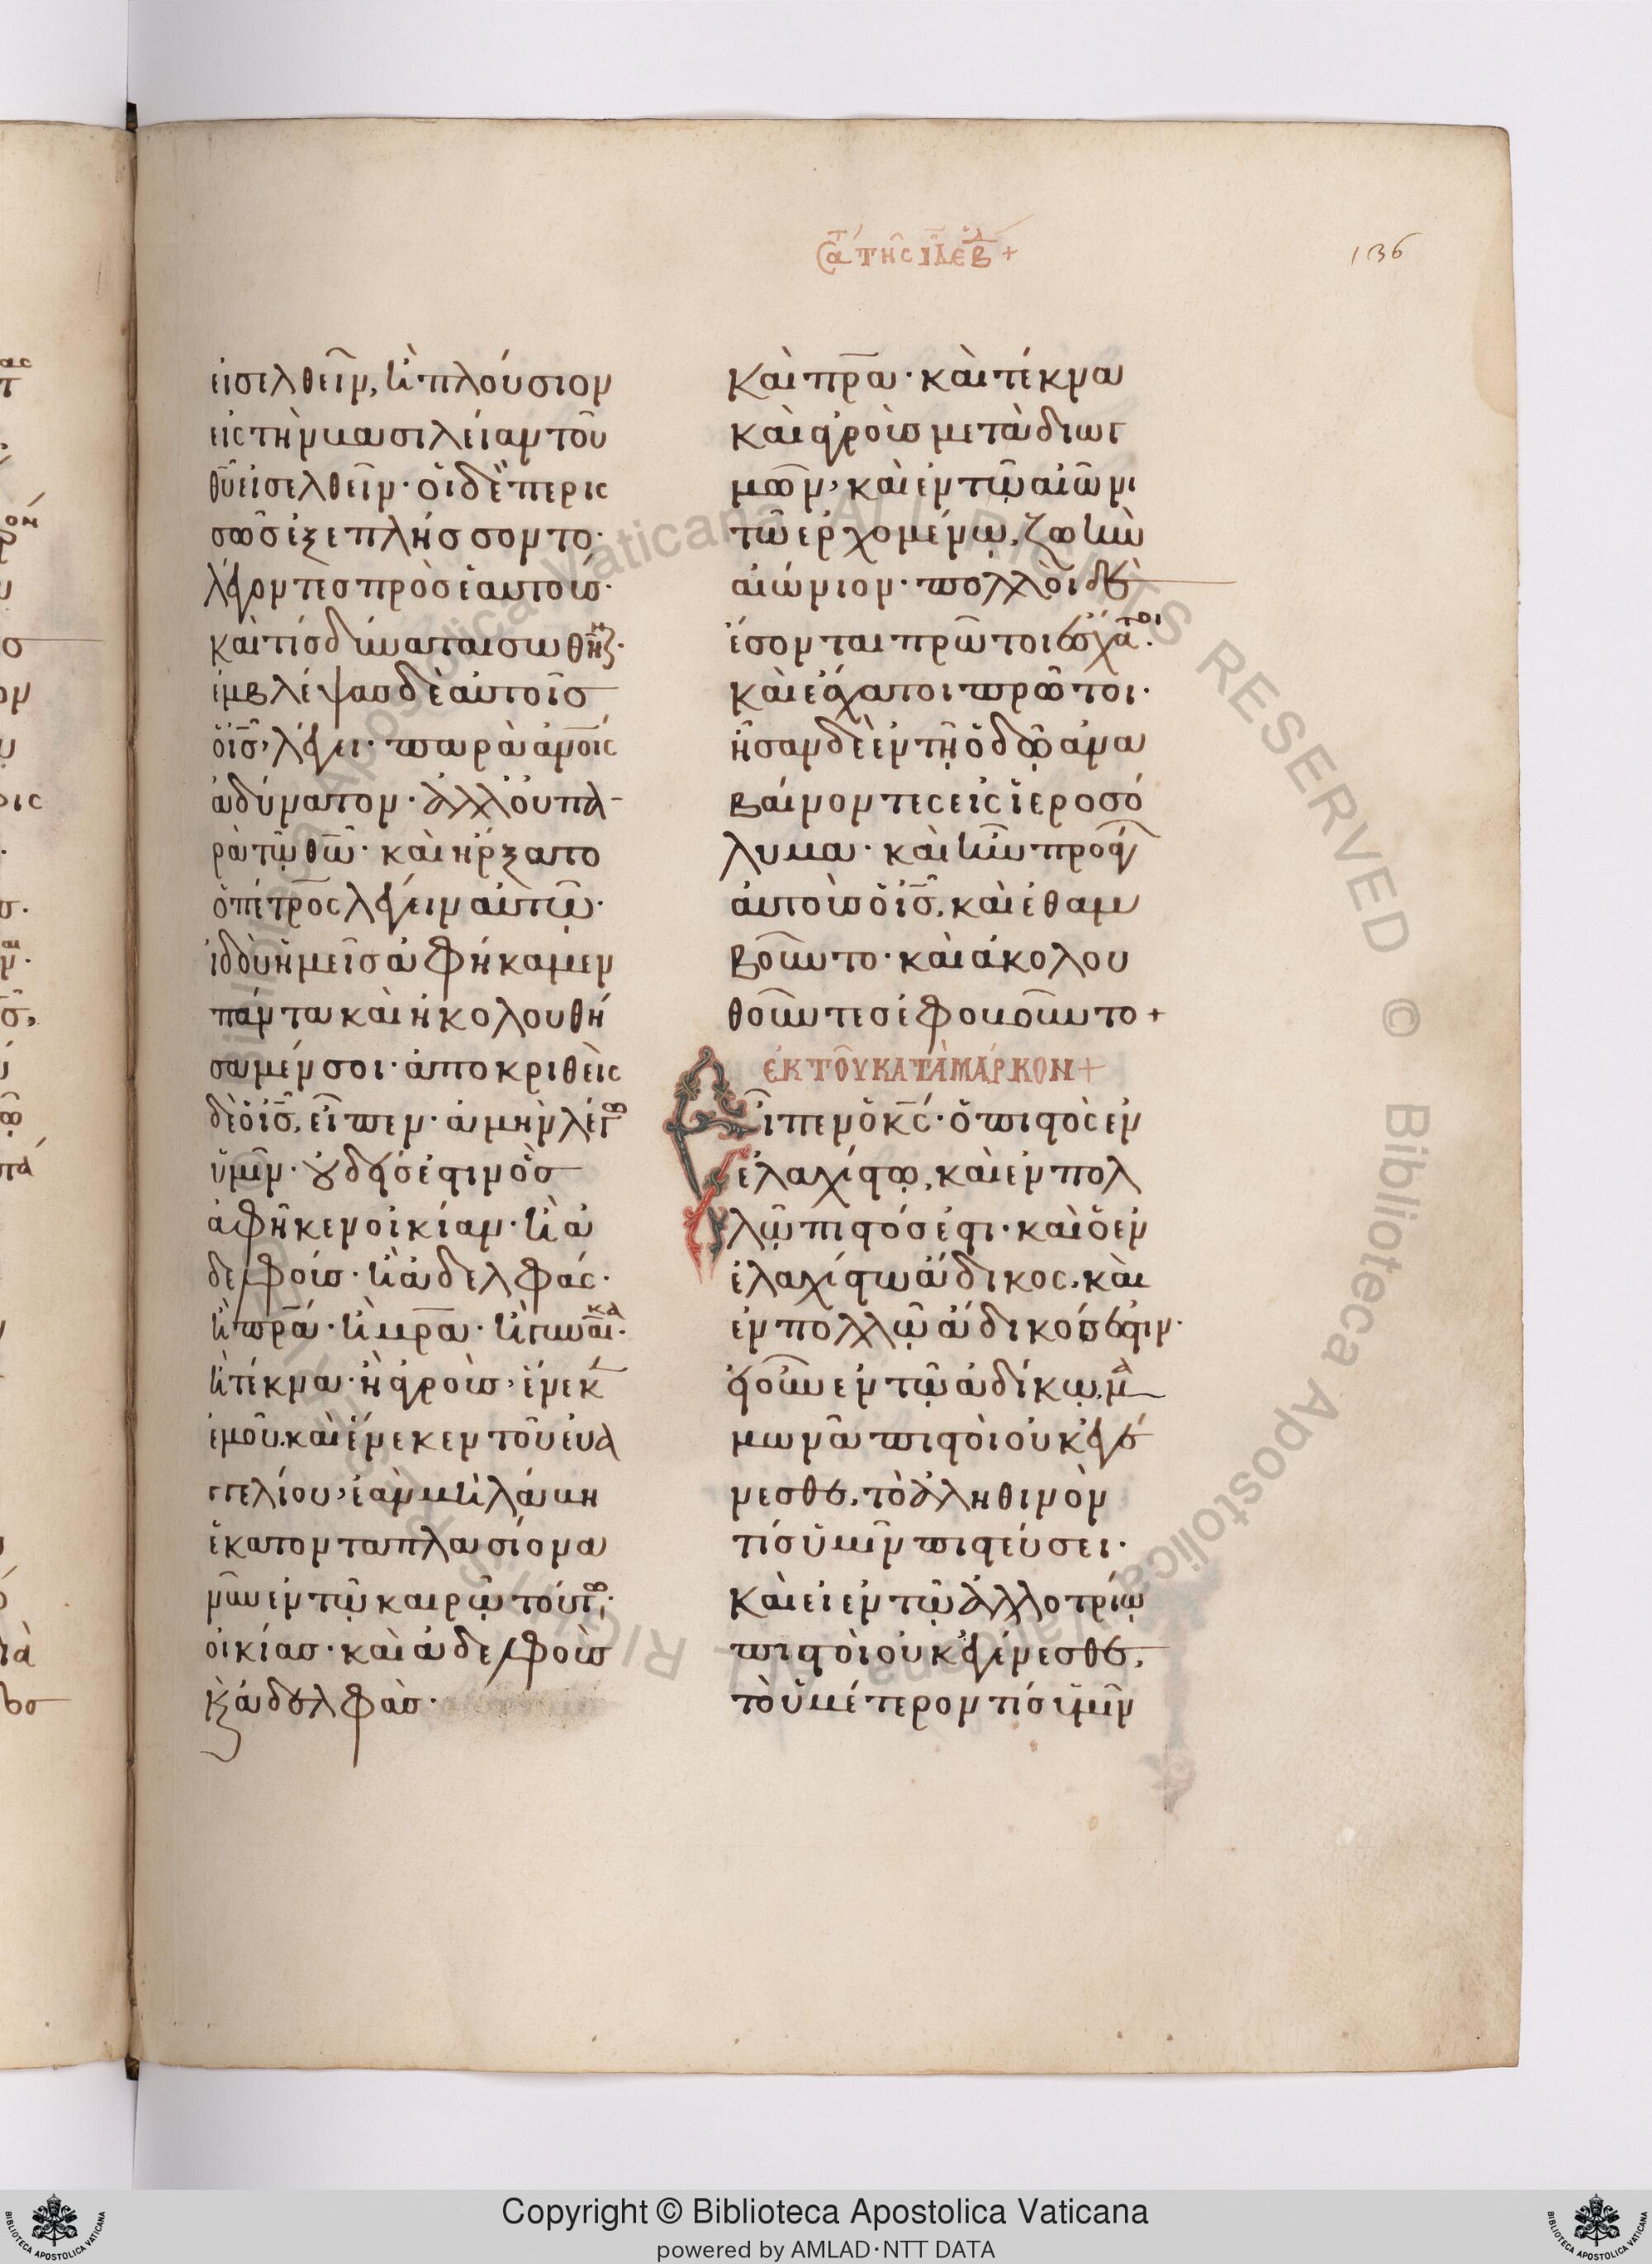 136
εἰσελθεῖν, ἢ πλούσιον
εἰς τὴν βασιλείαν τοῦ
θυ εἰσελθεῖν· οἱ δὲ περις
σῶς ἐξεπλήσσοντο·
λέγοντες πρὸς ἑαυτούς·
καὶ τίς δύναται σωθῆναι·
ἐμβλέψας δὲ αὐτοῖς
ὁ ις, λέγει· παρὰ ἀνοις
ἀδύνατον· ἀλλ οὐ πα-
ρὰ τῷ θω· καὶ ἤρξατο
ὁ πέτρος λέγειν αὐτῷ·
ἰδοὺ ἡμεῖς ἀφήκαμεν
πάντα καὶ ἠκολουθή
σαμέν σοι· ἀποκριθεὶς
δὲ ὁ ις, εἶπεν· ἀμὴν λέγω
ὑμῖν· οὐδείς ἐστιν ὃς
ἀφῆκεν οἰκίαν· ἢ ἀ
δελφούς· ἢ ἀδελφάς·
ἢ πρα· ἢ μρα· ἢ γυναῖκα·
ἢ τέκνα· ἢ ἀγροὺς, ἕνεκ
ἐμοῦ, καὶ ἕνεκεν τοῦ εὐα
γγελίου, ἐὰν μὴ λάβη
ἑκατονταπλασίονα
νῦν ἐν τῷ καιρῷ τούτω·
οἰκίας· καὶ ἀδελφοὺς
καὶ ἀδελφὰς·
καὶ πρα· καὶ τέκνα
καὶ ἀγροὺς μετὰ διωγ
μῶν, καὶ ἐν τῷ αἰῶνι
τῶ ἐρχομένῳ, ζωὴν
αἰώνιον· πολλοὶ δὲ
ἔσονται πρῶτοι ἔσχατοι·
καὶ ἔσχατοι πρῶτοι·
ἦσαν δὲ ἐν τῇ ὁδῷ ἀνα
βαίνοντες εἰς ἱεροσό
λυμα· καὶ ἦν προάγων
αὐτοὺς ὁ ις, καὶ ἐθαμ
βοῦντο· καὶ ἀκολου
θοῦντες ἐφοβοῦντο +
ἐκ τοῦ κατὰ μάρκον +
Εἶπεν ὁ κς· ὁ πιστὸς ἐν
ἐλαχίστῳ, καὶ ἐν πολ
λῷ πιστός ἐστι· καὶ ὁ ἐν
ἐλαχίστω ἄδικος, καὶ
ἐν πολλῷ ἄδικός ἐστιν·
εἰ οὖν ἐν τῷ ἀδίκῳ μα
μωνᾶ πιστοὶ οὐκ ἐγέ
νεσθε, τὸ ἀληθινὸν
τίς ὑμῖν πιστεύσει·
καὶ εἰ ἐν τῷ ἀλλοτρίῳ
πιστοὶ οὐκ ἐγένεσθε,
τὸ ὑμέτερον τίς ὑμῖν
Copyright © Biblioteca Apostolica Vaticana
powered by AMLAD·NTT DATA